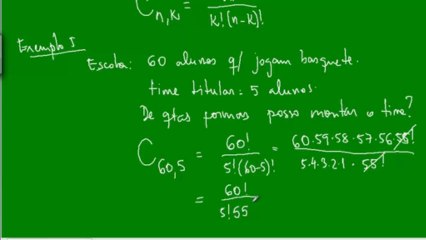 C n,k = n! / k!(n-k)!
Exemplo 5
Escola: 60 alunos q/ jogam basquete.
time titular = 5 alunos.
De qtas formas posso montar o time?
C 60,5 = 60! / 5!(60-5)! = 60.59.58.57.56.55! / 5.4.3.2.1.55!
= 60! / 5!55